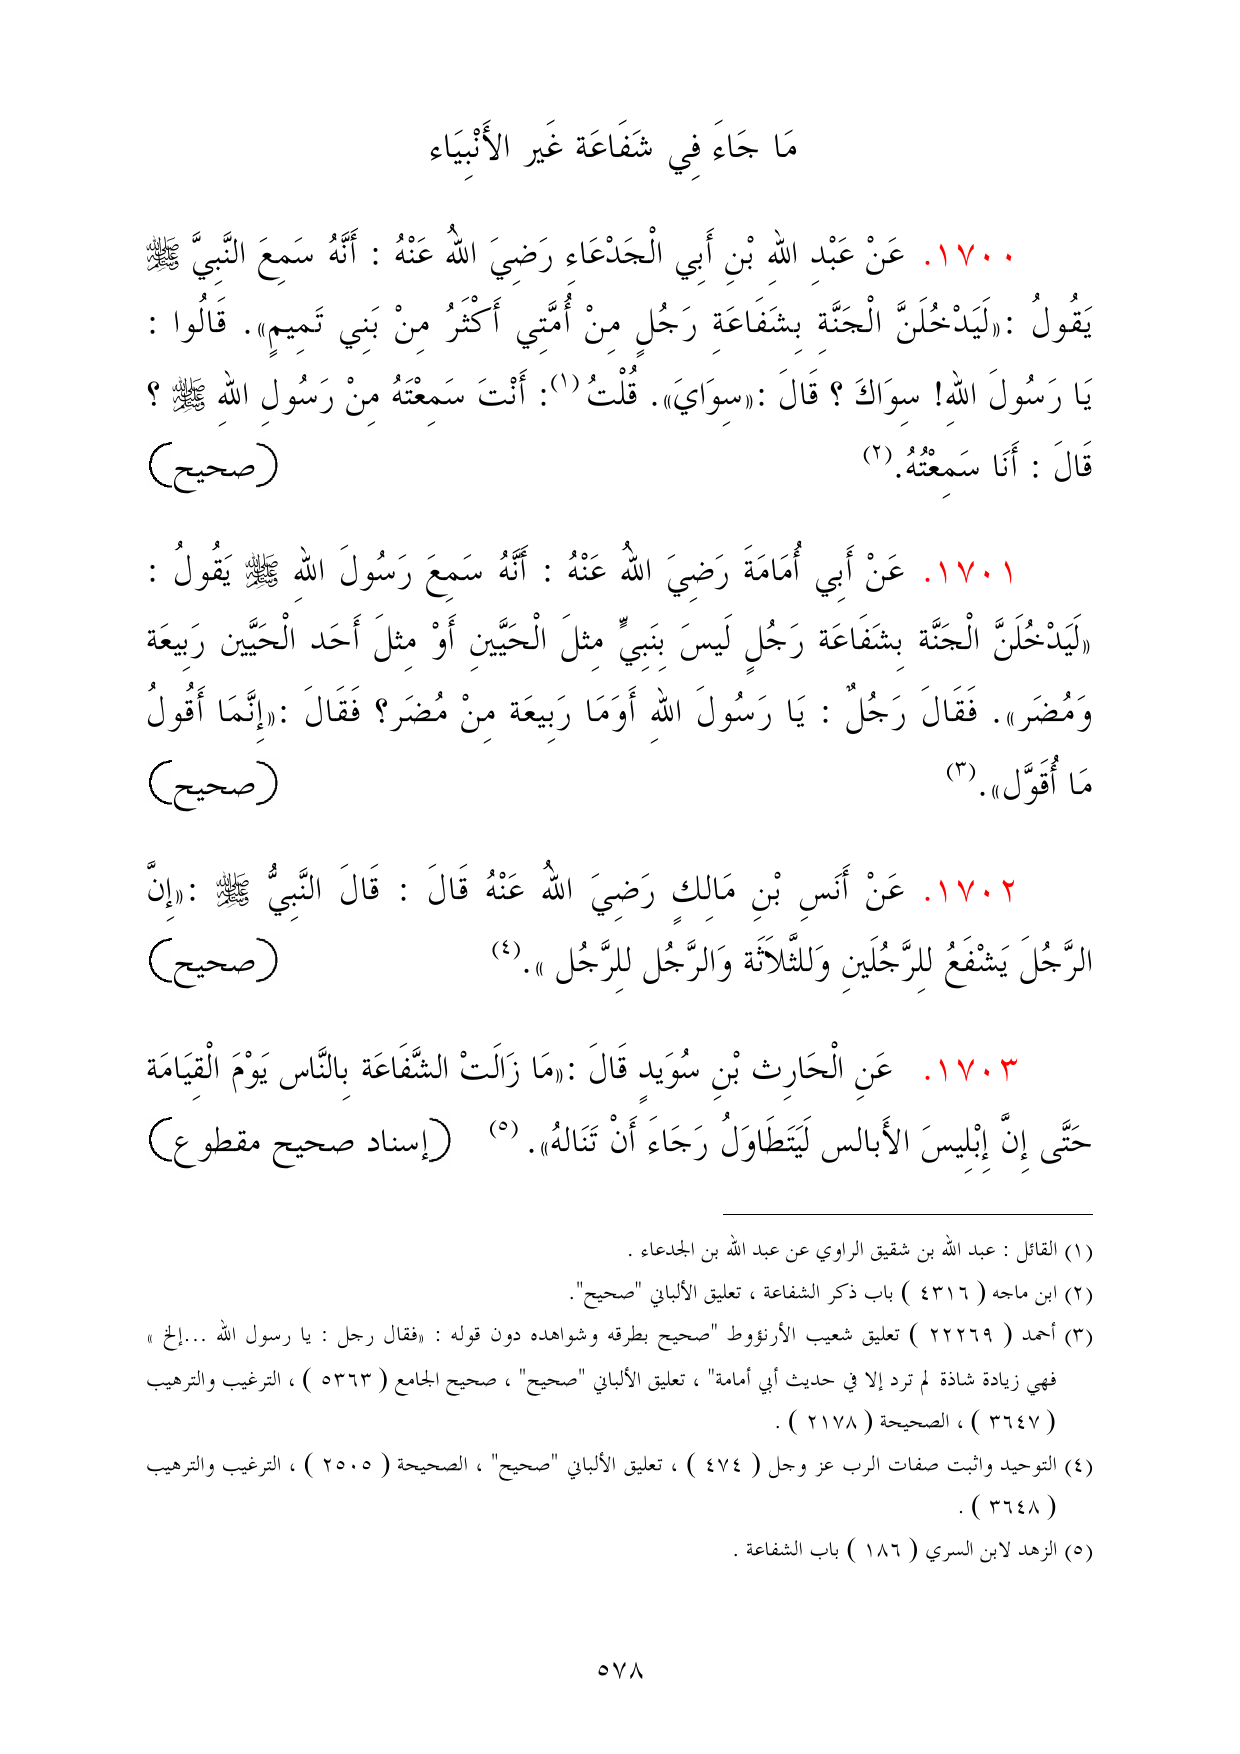 مَا جَاءَ فِي شَفَاعَة غَير الأَنْبِيَاء
١٧٠٠. عَنْ عَبْدِ اللهِ بْنِ أَبِي الْجَدْعَاءِ رَضِيَ اللهُ عَنْهُ : أَنَّهُ سَمِعَ النَّبِيَّ ﷺ
يَقُولُ :«لَيَدْخُلَنَّ الْجَنَّةِ بِشَفَاعَةِ رَجُلٍ مِنْ أُمَّتِي أَكْثَرُ مِنْ بَنِي تَمِيمٍ». قَالُوا :
يَا رَسُولَ اللهِ! سِوَاكَ ؟ قَالَ :«سِوَايَ». قُلْتُ(١): أَنْتَ سَمِعْتَهُ مِنْ رَسُولِ اللهِ ﷺ ؟
قَالَ : أَنَا سَمِعْتُهُ.(٢) (صحيح)
١٧٠١. عَنْ أَبِي أُمَامَةَ رَضِيَ اللهُ عَنْهُ : أَنَّهُ سَمِعَ رَسُولَ اللهِ ﷺ يَقُولُ :
«لَيَدْخُلَنَّ الْجَنَّة بِشَفَاعَة رَجُلٍ لَيسَ بِنَبِيٍّ مِثلَ الْحَيَّينِ أَوْ مِثلَ أَحَد الْحَيَّين رَبِيعَة
وَمُضَر». فَقَالَ رَجُلٌ : يَا رَسُولَ اللهِ أَوَمَا رَبِيعَة مِنْ مُضَر؟ فَقَالَ :«إِنَّمَا أَقُولُ
مَا أُقَوَّل».(٣) (صحيح)
١٧٠٢. عَنْ أَنَسِ بْنِ مَالِكٍ رَضِيَ اللهُ عَنْهُ قَالَ : قَالَ النَّبِيُّ ﷺ :«إِنَّ
الرَّجُلَ يَشْفَعُ لِلرَّجُلَينِ وَللثَّلاَثَة وَالرَّجُل لِلرَّجُل ».(٤) (صحيح)
١٧٠٣. عَنِ الْحَارِث بْنِ سُوَيدٍ قَالَ :«مَا زَالَتْ الشَّفَاعَة بِالنَّاس يَوْمَ الْقِيَامَة
حَتَّى إِنَّ إِبْلِيسَ الأَبالس لَيَتَطَاوَلُ رَجَاءَ أَنْ تَنَالهُ». (٥) (إسناد صحيح مقطوع)
(١) القائل : عبد الله بن شقيق الراوي عن عبد الله بن الجدعاء .
(٢) ابن ماجه ( ٤٣١٦ ) باب ذكر الشفاعة ، تعليق الألباني "صحيح".
(٣) أحمد ( ٢٢٢٦٩ ) تعليق شعيب الأرنؤوط "صحيح بطرقه وشواهده دون قوله : «فقال رجل : يا رسول الله ...إلخ »
فهي زيادة شاذة لم ترد إلا في حديث أبي أمامة" ، تعليق الألباني "صحيح" ، صحيح الجامع ( ٥٣٦٣ ) ، الترغيب والترهيب
( ٣٦٤٧ ) ، الصحيحة ( ٢١٧٨ ) .
(٤) التوحيد واثبت صفات الرب عز وجل ( ٤٧٤ ) ، تعليق الألباني "صحيح" ، الصحيحة ( ٢٥٠٥ ) ، الترغيب والترهيب
( ٣٦٤٨ ) .
(٥) الزهد لابن السري ( ١٨٦ ) باب الشفاعة .
٥٧٨